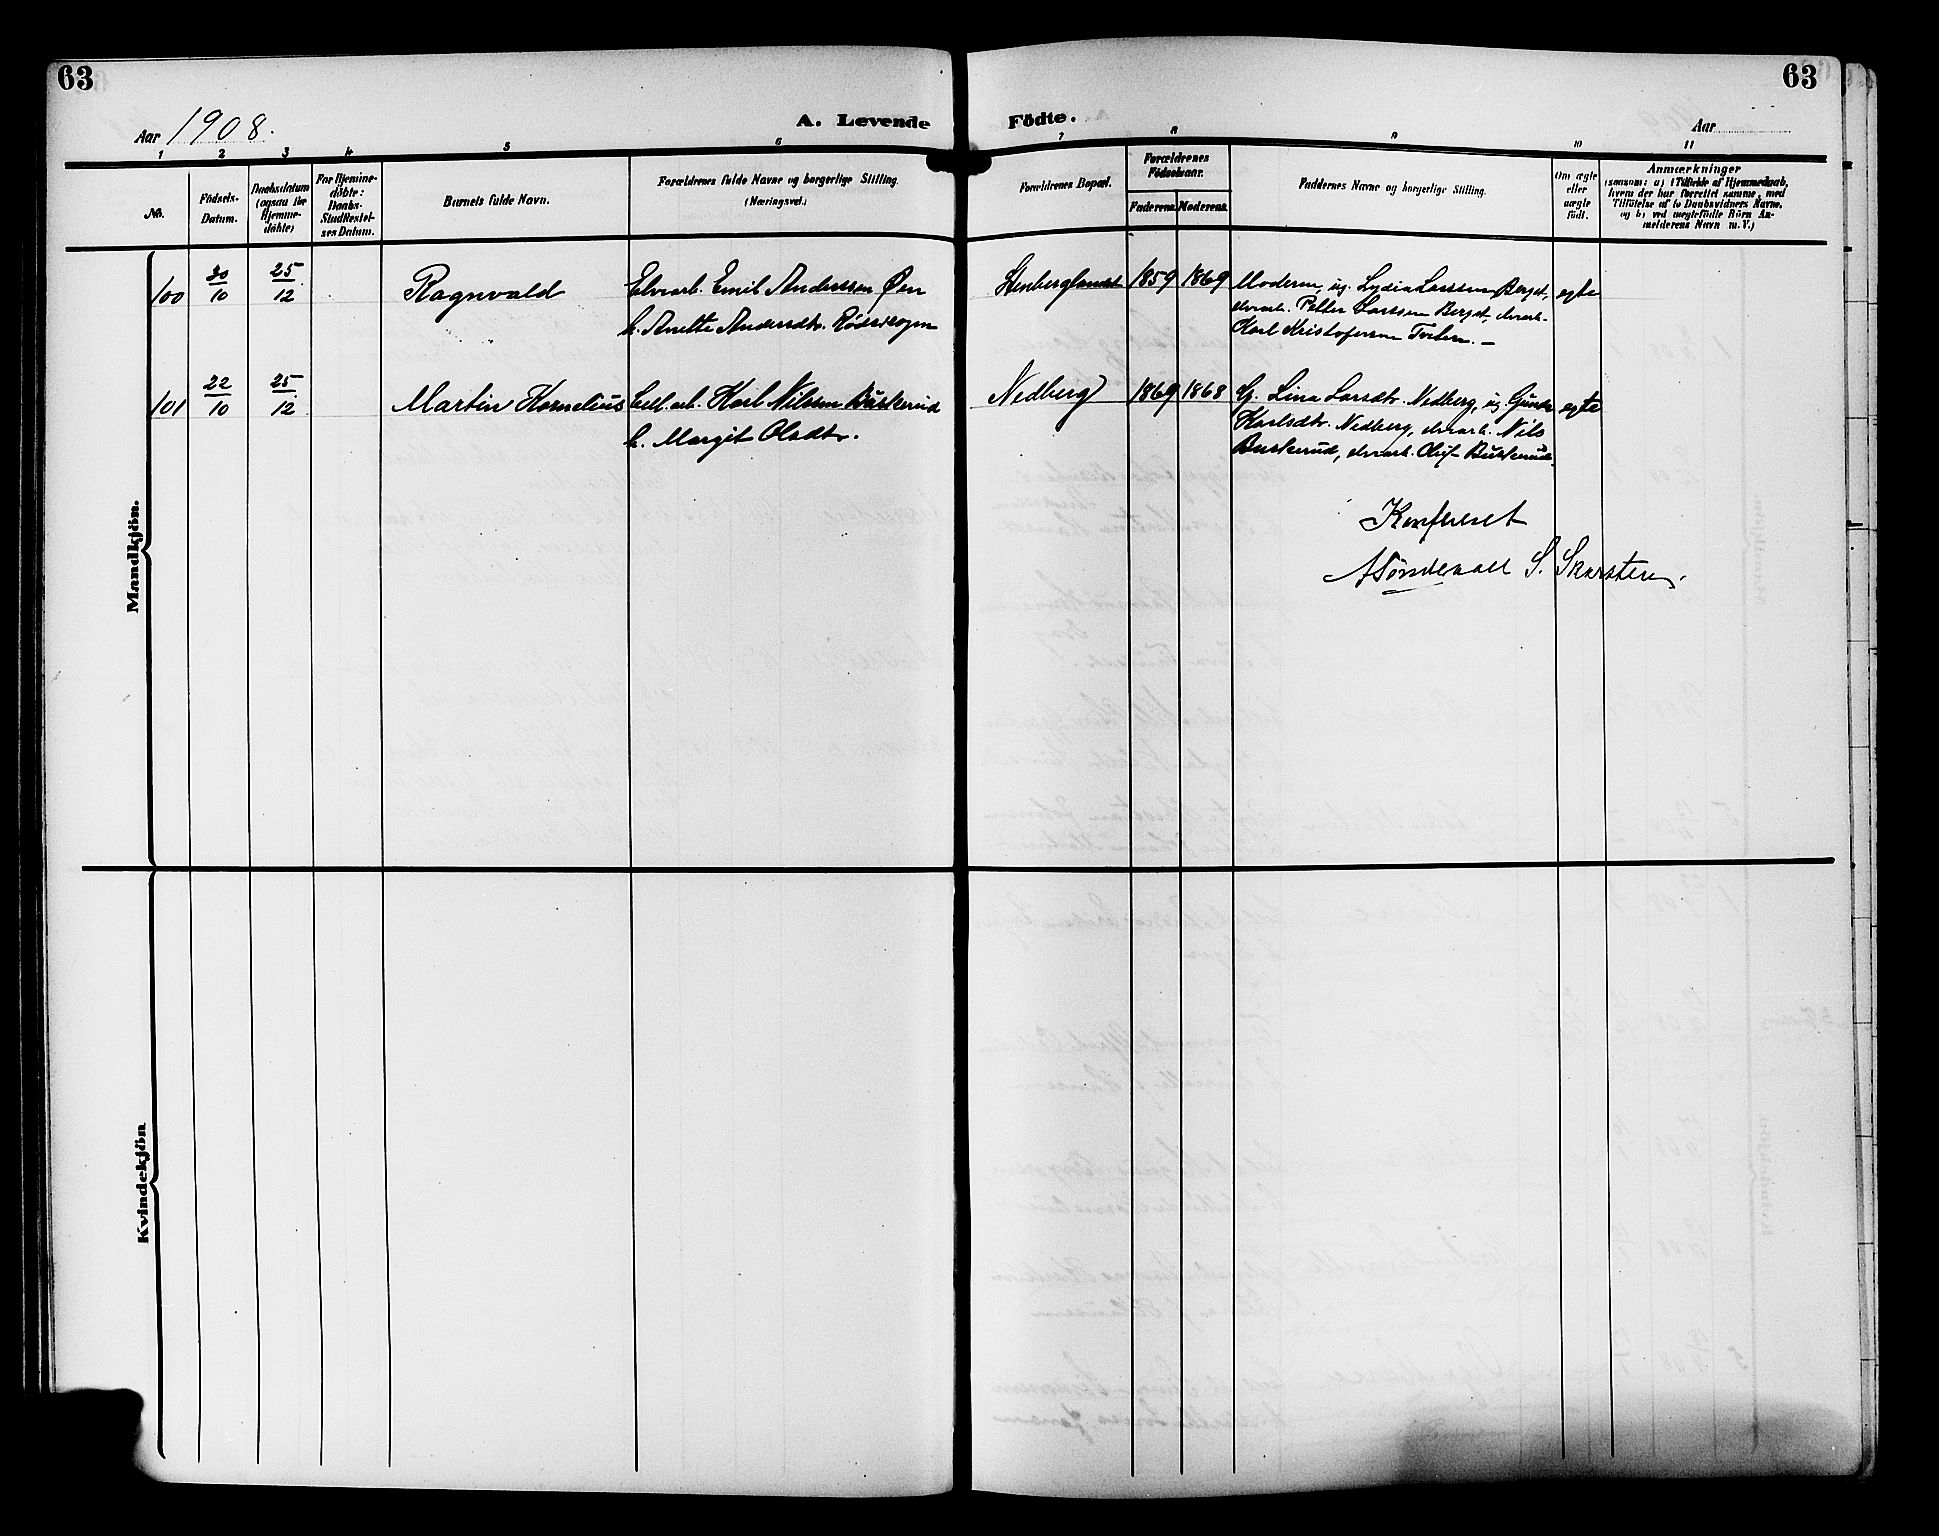 63
63
Aar 1908.
A. Levende Födte.
Aar
1 2 3 4 5 6 7 8 9 10 11
No.
Födsels-
Datum.
Daabsdatum
(ogsaa for
Hjemme-
döbte)
For Hjemme-
döbte:
Daabs-
Stadfestel-
ses Datum.
Barnets fulde Navn.
Forældrenes fulde Navne og borgerlige Stilling.
(Næringsvei.)
Forældrenes Bopæl.
Forældrenes
Födselsaar.
Faderens. Moderens.
Faddernes Navne og borgerlige Stilling.
Om ægte
eller
uægte
født.
Anmærkninger
(saasom: a) i Tilfælde af Hjemmedaab,
hvem der har forrettet samme, med
Tilföielse af to Daabsvidners Navne,
og b) ved uægtefödte Börn An-
melderens Navn m. V.)
Mandkjön.
100 30/10 25/12 Ragnvald
Elvearb. Emil Anderssen Øen
h. Anette Andersdtr. Rødsskogen
Stenberglandet 1859 1869
Moderen, ug. Lydia Larssen Berget,
elvearb. Petter Larssen Berget, elvearb.
Karl Kristofersen Tveten. —
egte
101 22/10 25/12 Martin Kornelius
Cell.arb. Karl Nilssen Buskerud
h. Margit Olsdtr.
Nedberg 1869 1868
G. Lina Larsdtr. Nedberg, ug. Gunda
Karlsdtr. Nedberg, elvearb. Nils
Buskerud, elvearb. Oluf Buskerud.
egte
Konfereret
S. Skarsten.
Kvindekjön